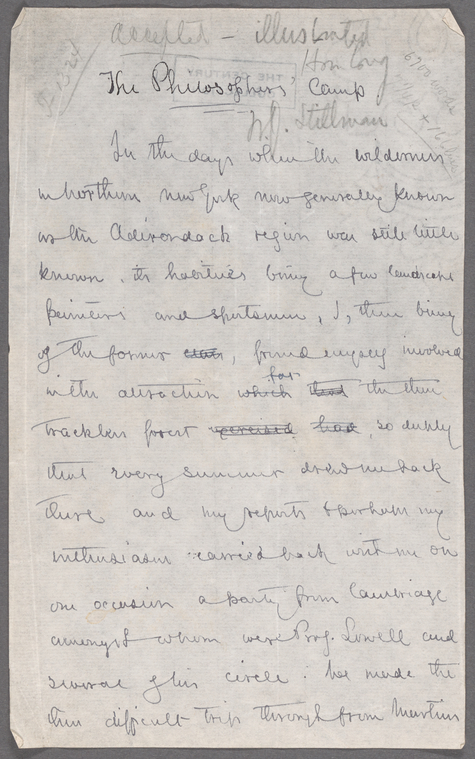 accepted – illustrated
Hon Long
6700 words
THE CENTURY
The Philosophers' Camp
W. J. Stillman
In the days when the wilderness
in Northern New York now generally known
as the Adirondack region was still little
known, its habitués being a few landscape
painters and sportsmen, I, then being
of the former class, found myself involved
in the attraction which for had the then
trackless forest exercised had, so deeply
that every summer drew me back
there and my reports & perhaps my
enthusiasm carried back with me on
one occasion a party from Cambridge
amongst whom were Prof. Lowell and
several of his circle. We made the
then difficult trip through from Martins